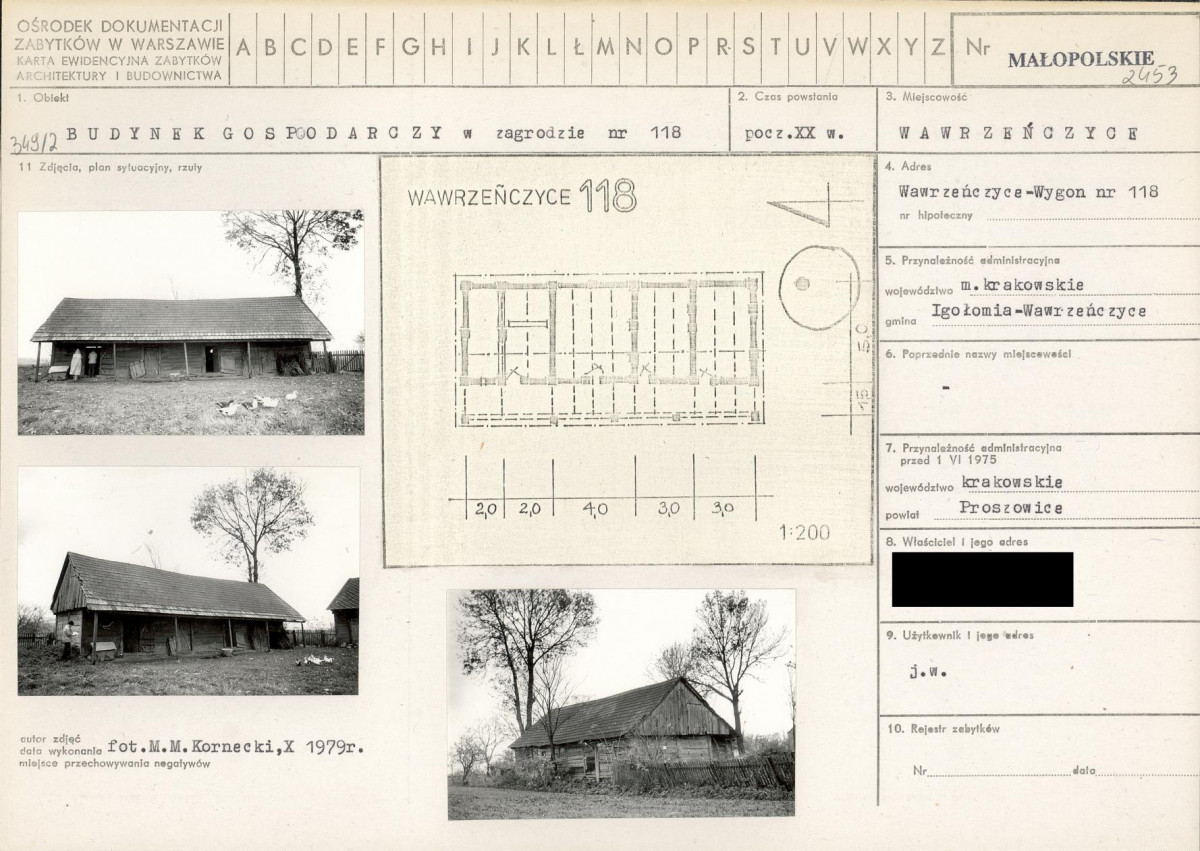 OŚRODEK DOKUMENTACJI
ZABYTKÓW W WARSZAWIE
KARTA EWIDENCYJNA ZABYTKÓW
ARCHITEKTURY I BUDOWNICTWA
A B C D E F G H I J K L Ł M N O P R S T U V W X Y Z
Nr
MAŁOPOLSKIE
2453
1. Obiekt
349/2 BUDYNEK GOSPODARCZY w zagrodzie nr 118
2. Czas powstania
pocz.XX w.
3. Miejscowość
WAWRZEŃCZYCE
11 Zdjęcia, plan sytuacyjny, rzuty
WAWRZEŃCZYCE 118
2,0 2,0 4,0 3,0 3,0
1:200
autor zdjęć
data wykonania fot.M.M.Kornecki,X 1979r.
miejsce przechowywania negatywów
4. Adres
Wawrzeńczyce-Wygon nr 118
nr hipoteczny
5. Przynależność administracyjna
województwo m.krakowskie
gmina Igołomia-Wawrzeńczyce
6. Poprzednie nazwy miejscowości
-
7. Przynależność administracyjna
przed 1 VI 1975
województwo krakowskie
powiat Proszowice
8. Właściciel i jego adres
9. Użytkownik i jego adres
j.w.
10. Rejestr zabytków
Nr data